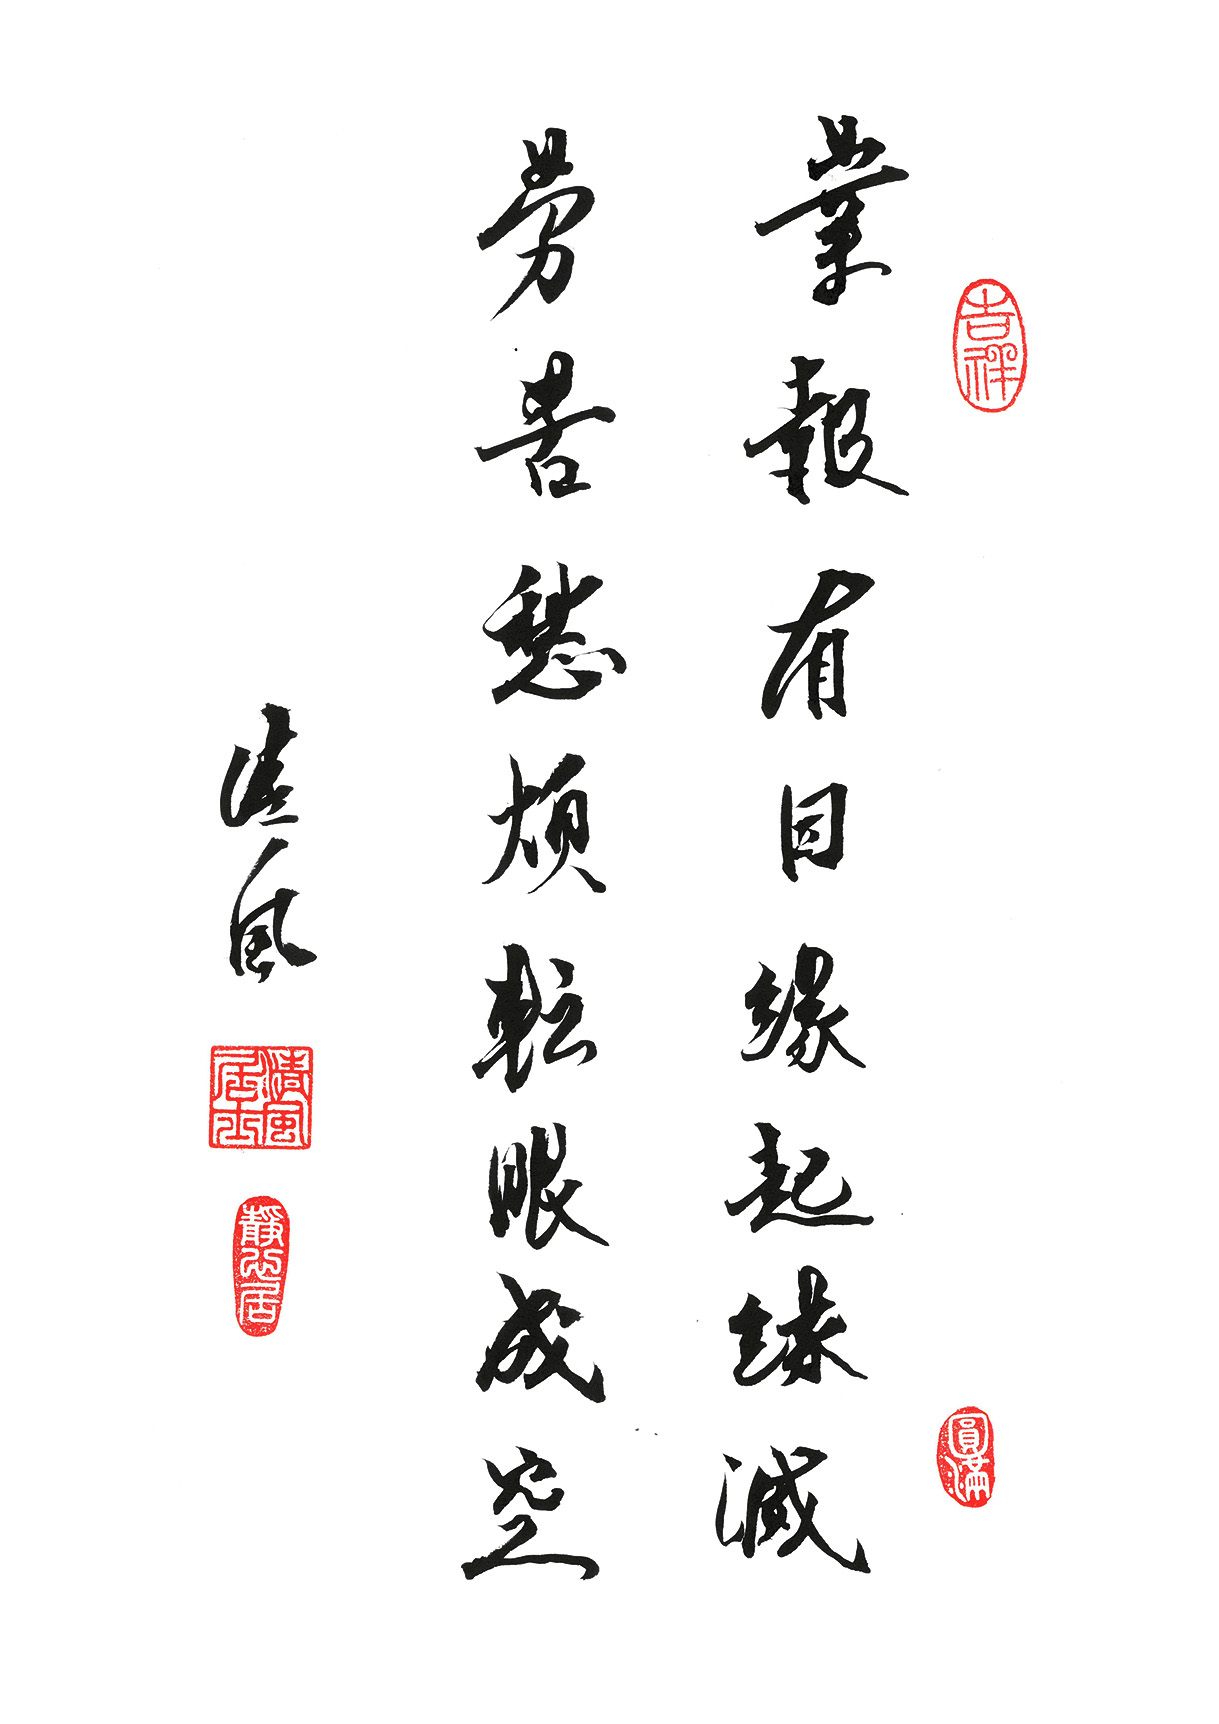 業報有因緣起緣滅
勞苦愁煩轉眼成空
清風
吉祥
圓滿
清風居士
靜心居